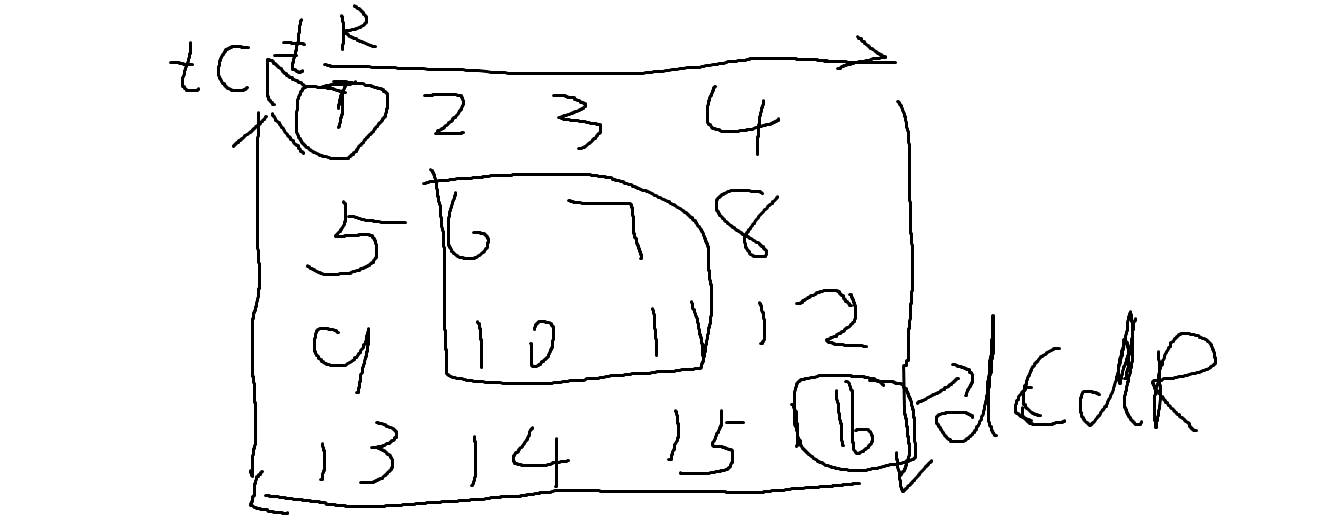 tC tR
1 2 3 4
5 6 7 8
9 10 11 12
13 14 15 16
dC dR